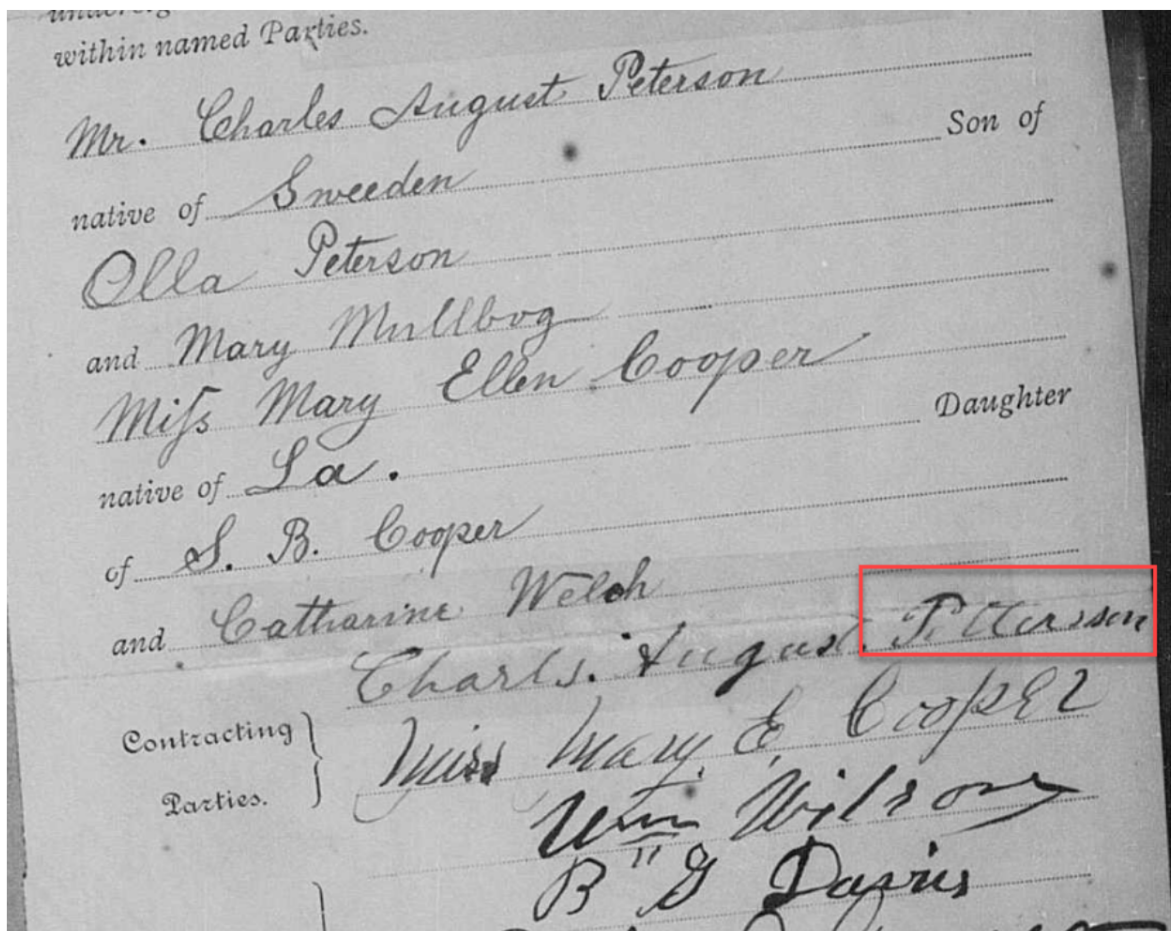 within named Parties.
Mr. Charles August Peterson
native of Sweeden Son of
Olla Peterson
and Mary Mullbog
Miſs Mary Ellen Cooper
native of La. Daughter
of S. B. Cooper
and Catharine Welch
Charls. August Petterson
Contracting Parties.
Miss Mary. E. Cooper
Wm Wilson
B " G Davis